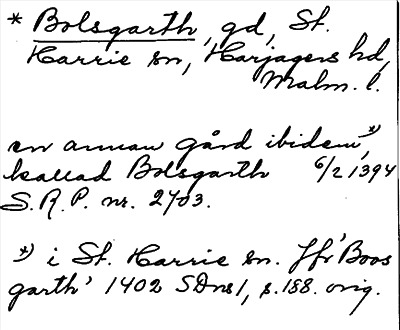 * Bolsgarth, gd, St.
Harrie sn, Harjagers hd,
Malm. l.
en annan gård ibidem *),
kallad Bolsgarth 6/2 1394
S.R.P. nr. 2703.
*) i St. Harrie sn. Jfr 'Boos
garth' 1402 SDns 1, s.188. orig.